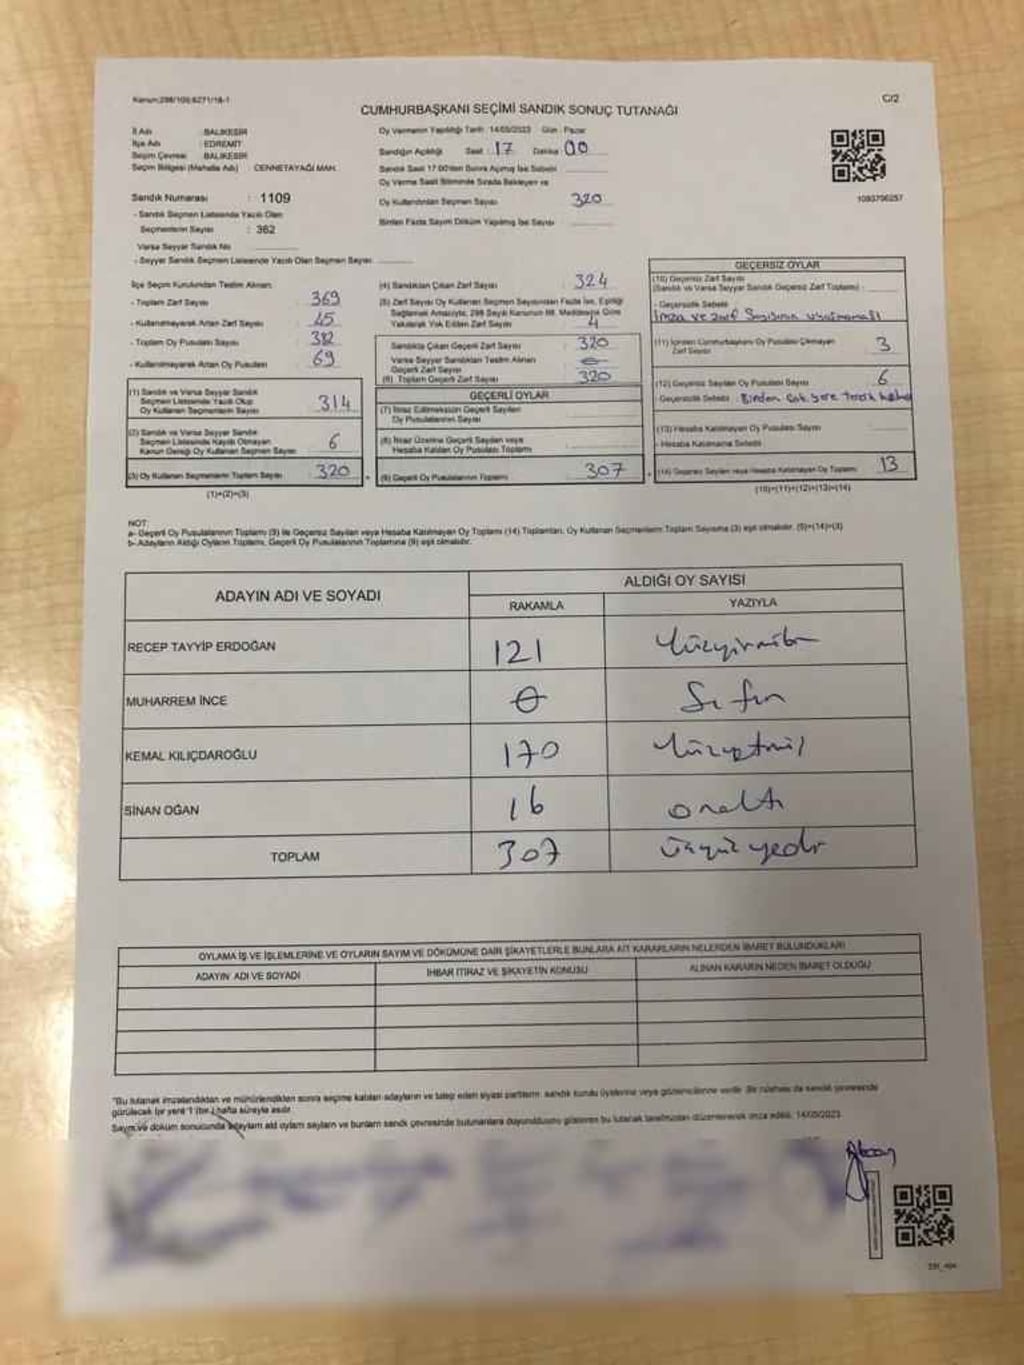 Kanun:298/105;6271/18-1
C/2
CUMHURBAŞKANI SEÇİMİ SANDIK SONUÇ TUTANAĞI
İl Adı : BALIKESİR
İlçe Adı : EDREMİT
Seçim Çevresi : BALIKESİR
Seçim Bölgesi (Mahalle Adı) : CENNETAYAĞI MAH.
Sandık Numarası : 1109
- Sandık Seçmen Listesinde Yazılı Olan
Seçmenlerin Sayısı : 362
Varsa Seyyar Sandık No
- Seyyar Sandık Seçmen Listesinde Yazılı Olan Seçmen Sayısı
Oy Vermenin Yapıldığı Tarih : 14/05/2023 Gün : Pazar
Sandığın Açıldığı Saat : 17 Dakika 00
Sandık Saat 17:00'den Sonra Açılmış İse Sebebi
Oy Verme Saati Bitiminde Sırada Bekleyen ve
Oy Kullandırılan Seçmen Sayısı 320
Birden Fazla Sayım Döküm Yapılmış İse Sayısı
1093796257
İlçe Seçim Kurulundan Teslim Alınan:
- Toplam Zarf Sayısı : 369
- Kullanılmayarak Artan Zarf Sayısı : 45
- Toplam Oy Pusulası Sayısı : 382
- Kullanılmayarak Artan Oy Pusulası : 69
(1) Sandık ve Varsa Seyyar Sandık
Seçmen Listesinde Yazılı Olup
Oy Kullanan Seçmenlerin Sayısı : 314
(2) Sandık ve Varsa Seyyar Sandık
Seçmen Listesinde Kayıtlı Olmayan
Kanun Gereği Oy Kullanan Seçmen Sayısı 6
(3) Oy Kullanan Seçmenlerin Toplam Sayısı : 320
(1)+(2)=(3)
(4) Sandıktan Çıkan Zarf Sayısı : 324
(5) Zarf Sayısı Oy Kullanan Seçmen Sayısından Fazla İse, Eşitliği
Sağlamak Amacıyla, 298 Sayılı Kanunun 98. Maddesine Göre
Yakılarak Yok Edilen Zarf Sayısı : 4
Sandıkta Çıkan Geçerli Zarf Sayısı : 320
Varsa Seyyar Sandıktan Teslim Alınan
Geçerli Zarf Sayısı 0
(6) Toplam Geçerli Zarf Sayısı : 320
GEÇERLİ OYLAR
(7) İtiraz Edilmeksizin Geçerli Sayılan
Oy Pusulalarının Sayısı
(8) İtiraz Üzerine Geçerli Sayılan veya
Hesaba Katılan Oy Pusulası Toplamı
(9) Geçerli Oy Pusulalarının Toplamı : 307
GEÇERSİZ OYLAR
(10) Geçersiz Zarf Sayısı
(Sandık ve Varsa Seyyar Sandık Geçersiz Zarf Toplamı)
- Geçersizlik Sebebi :
İmza ve zarf Sayısının uyuşmaması
(11) İçinden Cumhurbaşkanı Oy Pusulası Çıkmayan
Zarf Sayısı 3
(12) Geçersiz Sayılan Oy Pusulası Sayısı 6
- Geçersizlik Sebebi : Birden çok yere
(13) Hesaba Katılmayan Oy Pusulası Sayısı
- Hesaba Katılmama Sebebi
(14) Geçersiz Sayılan veya Hesaba Katılmayan Oy Toplamı 13
(10)+(11)+(12)+(13)=(14)
NOT:
a- Geçerli Oy Pusulalarının Toplamı (9) ile Geçersiz Sayılan veya Hesaba Katılmayan Oy Toplamı (14) Toplamları, Oy Kullanan Seçmenlerin Toplam Sayısına (3) eşit olmalıdır. (9)+(14)=(3)
b- Adayların Aldığı Oyların Toplamı, Geçerli Oy Pusulalarının Toplamına (9) eşit olmalıdır.
ADAYIN ADI VE SOYADI
ALDIĞI OY SAYISI
RAKAMLA YAZIYLA
RECEP TAYYİP ERDOĞAN 121 Yüzyirmibir
MUHARREM İNCE 0 Sıfır
KEMAL KILIÇDAROĞLU 170 Yüzyetmiş
SİNAN OĞAN 16 onaltı
TOPLAM 307 üçyüz yedi
OYLAMA İŞ VE İŞLEMLERİNE VE OYLARIN SAYIM VE DÖKÜMÜNE DAİR ŞİKAYETLERLE BUNLARA AİT KARARLARIN NELERDEN İBARET BULUNDUKLARI
ADAYIN ADI VE SOYADI İHBAR İTİRAZ VE ŞİKAYETİN KONUSU ALINAN KARARIN NEDEN İBARET OLDUĞU
"Bu tutanak imzalandıktan ve mühürlendikten sonra seçime katılan adayların ve talep eden siyasi partilerin sandık kurulu üyelerine veya gözlemcilerine verilir. Bir nüshası da sandık çevresinde
görülecek bir yere 1 (bir ) hafta süreyle asılır.
Sayım ve döküm sonucunda adayların aldığı oyların sayıları ve bunların sandık çevresinde bulunanlara duyurulduğunu gösteren bu tutanak tarafımızdan düzenlenerek imza edildi. 14/05/2023